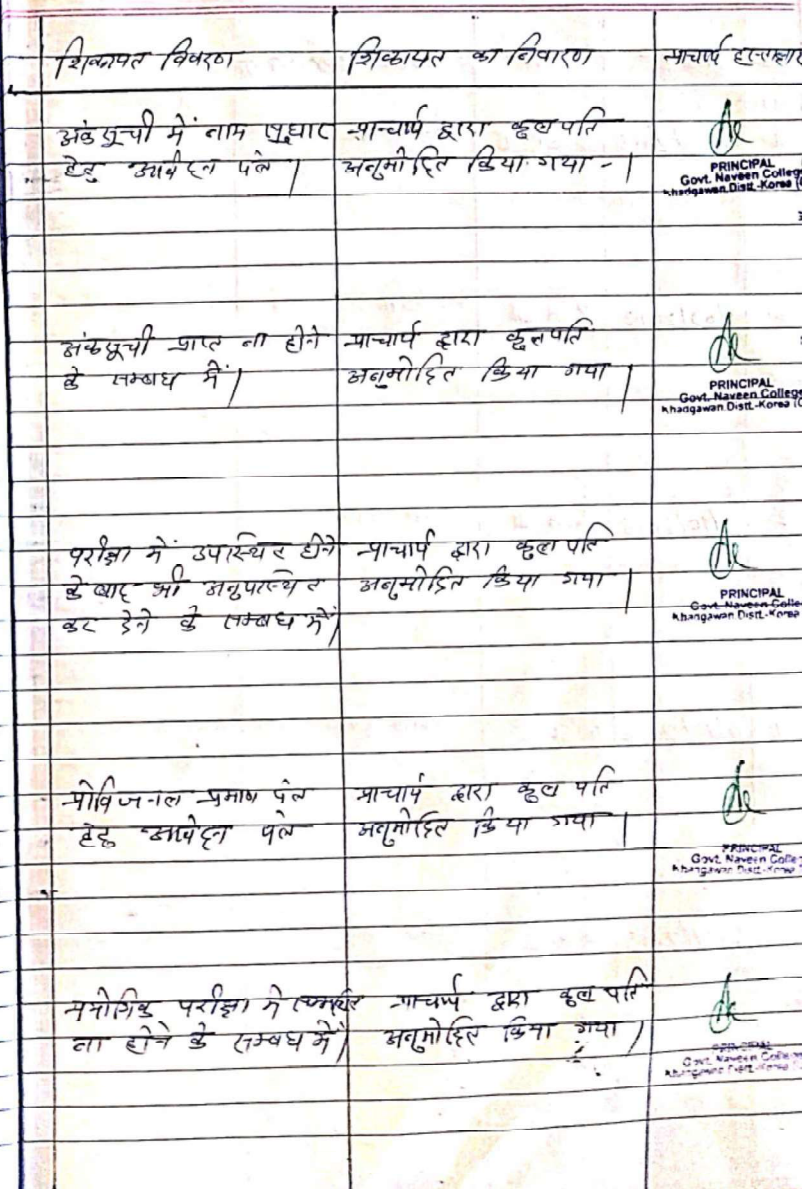 शिकायत विवरण
शिकायत का निवारण
प्राचार्य हस्ताक्षर
अंकसूची में नाम सुधार
हेतु आवेदन पत्र |
प्राचार्य द्वारा कुलपति
अनुमोदित किया गया - |
PRINCIPAL
Govt. Naveen College
Khadgawan Distt.-Korea (C
अंकसूची प्राप्त ना होने
के सम्बध में |
प्राचार्य द्वारा कुलपति
अनुमोदित किया गया |
PRINCIPAL
Govt. Naveen College
Khadgawan Distt.-Korea (C
परीक्षा में उपास्थित होने
के बाद भी अनुपास्थित
कर देने के सम्बध में |
प्राचार्य द्वारा कुलपति
अनुमोदित किया गया |
PRINCIPAL
Govt. Naveen Colle
Khangawan Distt.-Korea
प्रोविजनल प्रमाण पत्र
हेतु आवेदन पत्र
प्राचार्य द्वारा कुलपति
अनुमोदित किया गया |
PRINCIPAL
Govt. Naveen Colle
Khangawan Distt.-Korea
परीक्षा में
ना होने के सम्बध में |
प्राचार्य द्वारा कुलपति
अनुमोदित किया गया |
PRINCIPAL
Govt. Naveen College